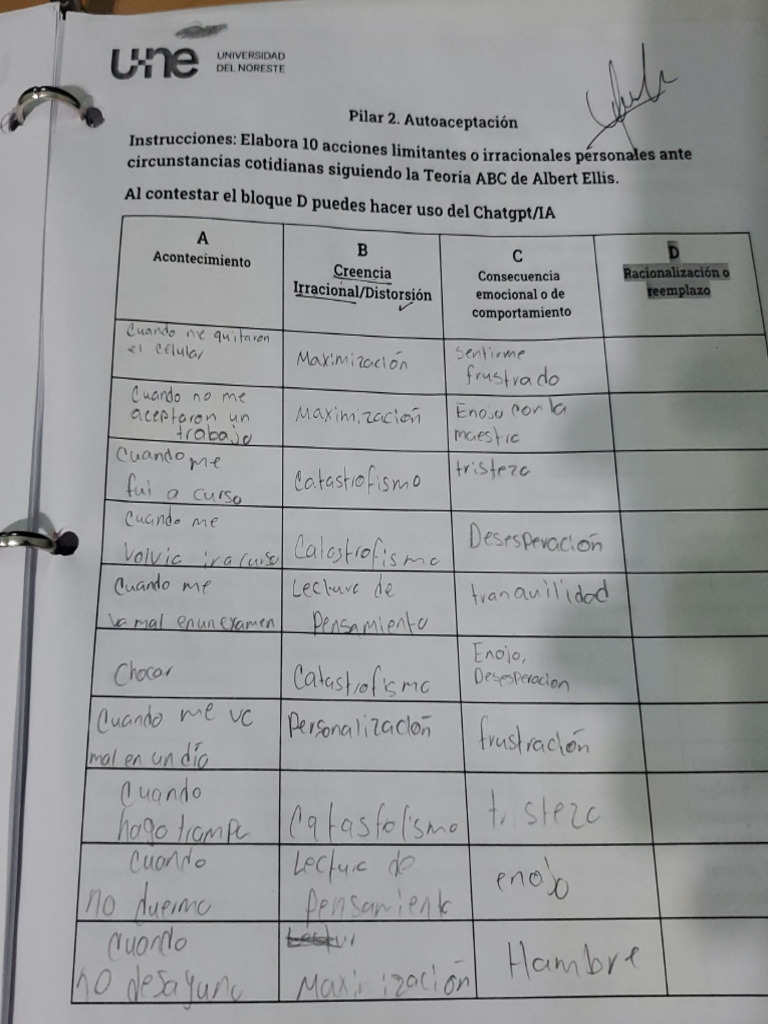 une UNIVERSIDAD
DEL NORESTE
Pilar 2. Autoaceptación
Instrucciones: Elabora 10 acciones limitantes o irracionales personales ante
circunstancias cotidianas siguiendo la Teoría ABC de Albert Ellis.
Al contestar el bloque D puedes hacer uso del Chatgpt/IA
A
Acontecimiento
B
Creencia
Irracional/Distorsión
C
Consecuencia
emocional o de
comportamiento
D
Racionalización o
reemplazo
Cuando me quitaron
el celular
Maximización
Sentirme
frustrado
Cuando no me
aceptaron un
trabajo
Maximización
Enojo con la
maestra
Cuando me
fui a curso
Catastrofismo
tristeza
Cuando me
volvia ir a curso
Catastrofismo
Desesperación
Cuando me
va mal en un examen
Lectura de
Pensamiento
tranquilidad
Chocar
Catastrofismo
Enojo,
Desesperacion
Cuando me va
mal en un día
Personalización
frustración
Cuando
hago trampa
Catastofismo
tristeza
Cuando
no duermo
Lectura de
Pensamiento
enojo
Cuando
no desayuno
Maximización
Hambre